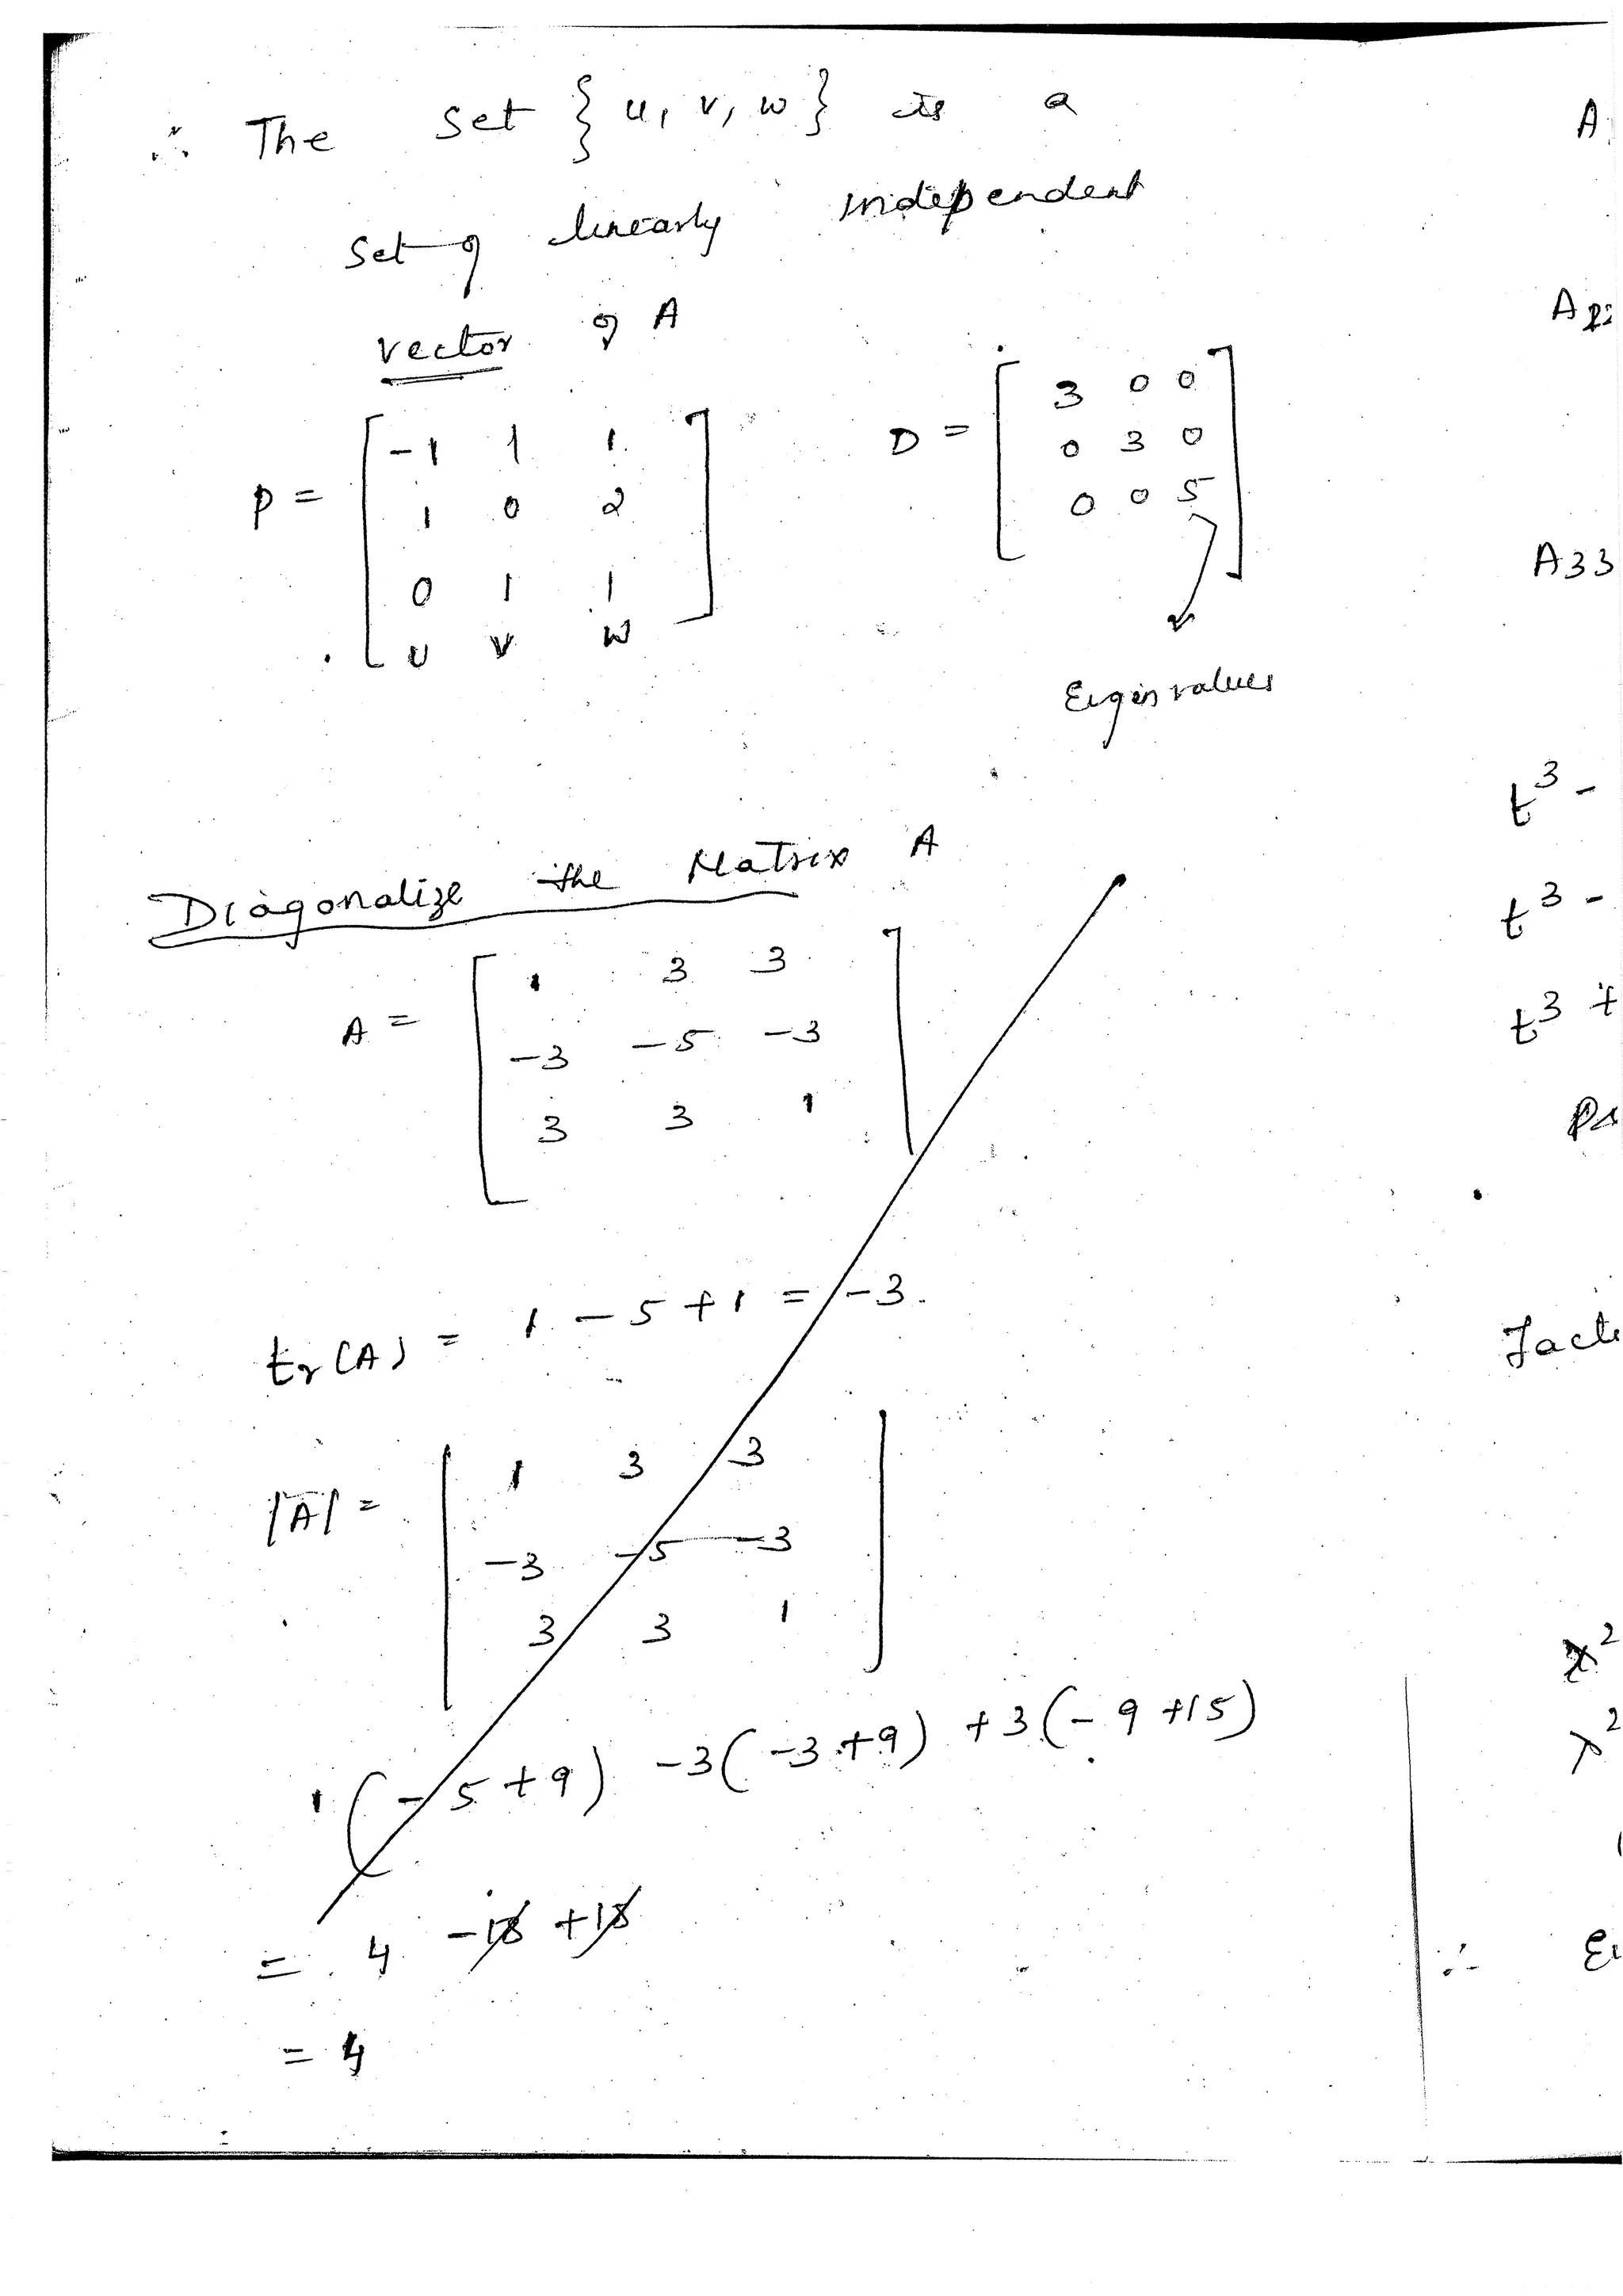 ∴ The set { u, v, w } is a
set of linearly independent
vector of A
P = [ -1 1 1
1 0 2
0 1 1
u v w ]
D = [ 3 0 0
0 3 0
0 0 5 ]
Eigen values
Diagonalize the Matrix A
A = [ 1 3 3
-3 -5 -3
3 3 1 ]
tr(A) = 1 - 5 + 1 = -3.
|A| = | 1 3 3
-3 -5 -3
3 3 1 |
1(-5+9) -3(-3+9) +3(-9+15)
= 4 -18 +18
= 4
A
A33
t³ -
t³ -
t³ +
x²
∴